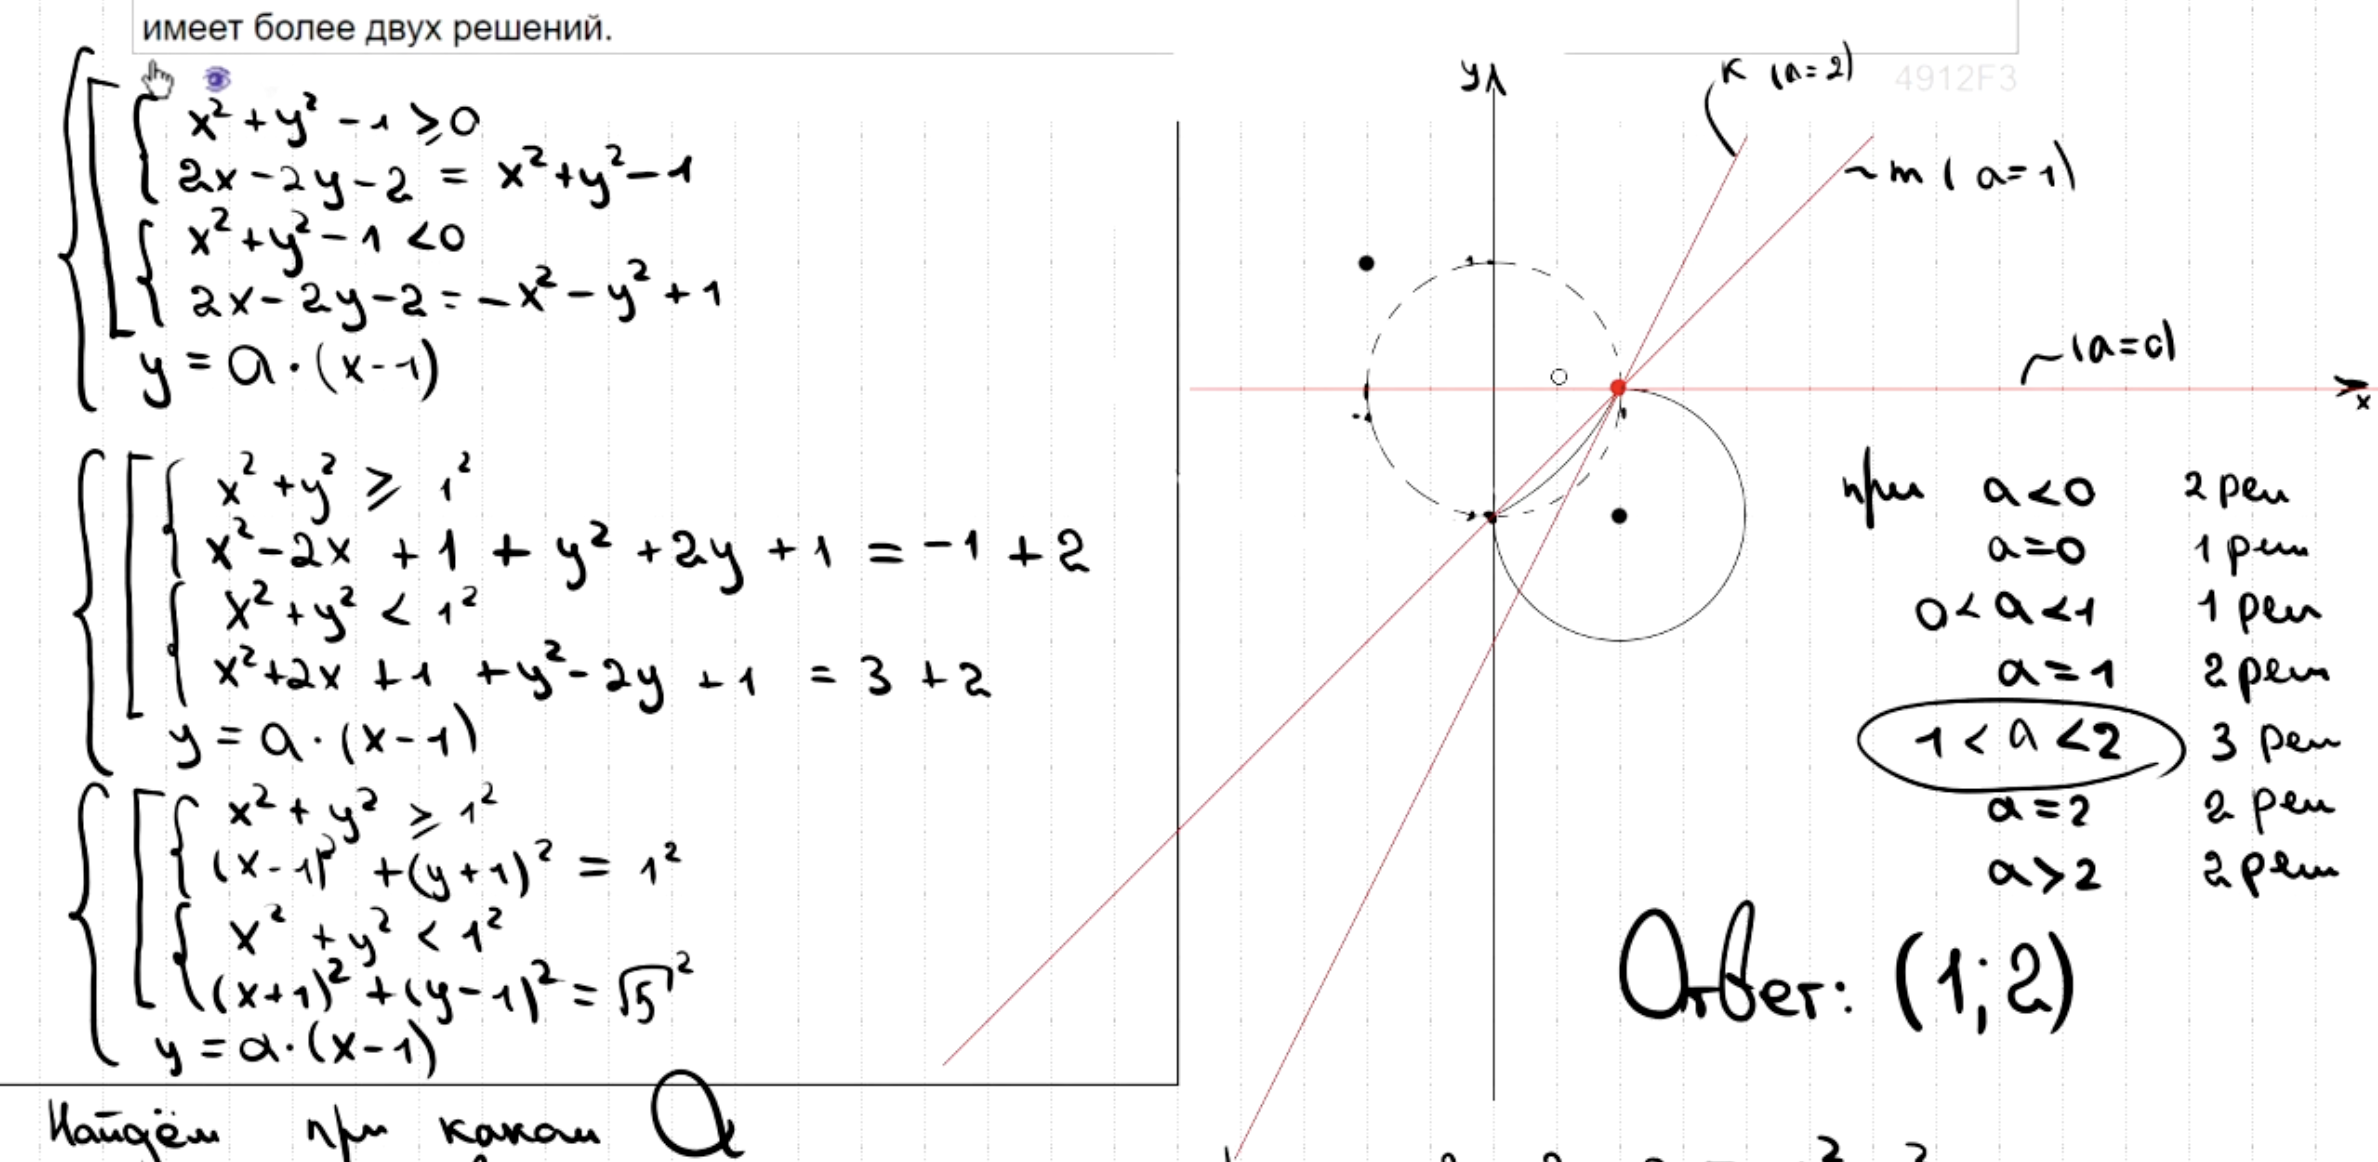 имеет более двух решений.
x² + y² - 1 ≥ 0
2x - 2y - 2 = x² + y² - 1
x² + y² - 1 < 0
2x - 2y - 2 = -x² - y² + 1
y = a · (x - 1)
x² + y² ≥ 1²
x² - 2x + 1 + y² + 2y + 1 = -1 + 2
x² + y² < 1²
x² + 2x + 1 + y² - 2y + 1 = 3 + 2
y = a · (x - 1)
x² + y² ≥ 1²
(x - 1)² + (y + 1)² = 1²
x² + y² < 1²
(x + 1)² + (y - 1)² = √5²
y = a · (x - 1)
Найдём при каком a
y
к (a = 2)
4912F3
m (a = 1)
(a = 0)
x
1
при a < 0 2 реш
a = 0 1 реш
0 < a < 1 1 реш
a = 1 2 реш
1 < a < 2 3 реш
a = 2 2 реш
a > 2 2 реш
Ответ: (1; 2)